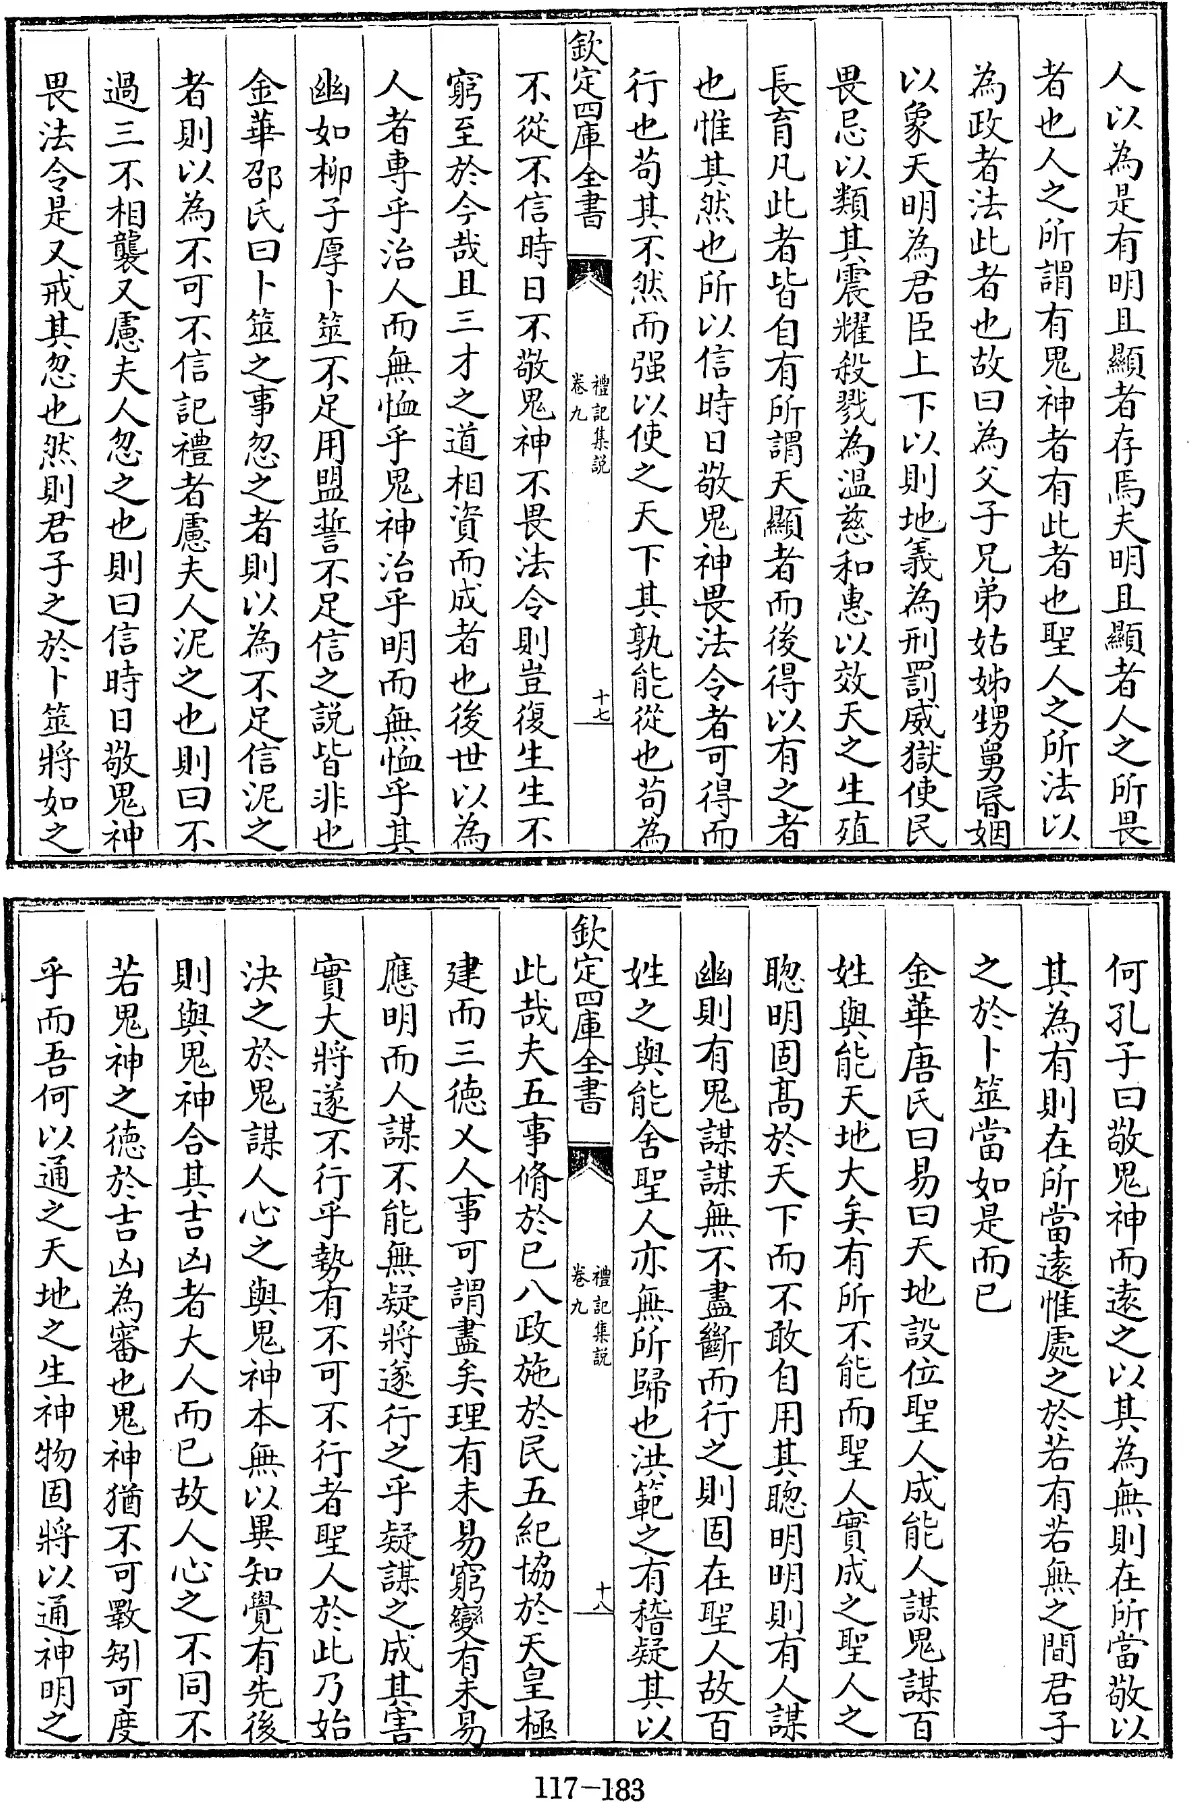 人以為是有明且顯者存焉夫明且顯者人之所畏
者也人之所謂有鬼神者有此者也聖人之所法以
為政者法此者也故曰為父子兄弟姑姊甥舅昏姻
以象天明為君臣上下以則地義為刑罰威獄使民
畏忌以類其震耀殺戮為温慈和惠以效天之生殖
長育凡此者皆自有所謂天顯者而後得以有之者
也惟其然也所以信時日敬鬼神畏法令者可得而
行也苟其不然而强以使之天下其孰能從也苟為
欽定四庫全書
禮記集説
卷九
十七
不從不信時日不敬鬼神不畏法令則豈復生生不
窮至於今哉且三才之道相資而成者也後世以為
人者專乎治人而無恤乎鬼神治乎明而無恤乎其
幽如柳子厚卜筮不足用盟誓不足信之説皆非也
金華邵氏曰卜筮之事忽之者則以為不足信泥之
者則以為不可不信記禮者慮夫人泥之也則曰不
過三不相襲又慮夫人忽之也則曰信時日敬鬼神
畏法令是又戒其忽也然則君子之於卜筮將如之
何孔子曰敬鬼神而逺之以其為無則在所當敬以
其為有則在所當逺惟處之於若有若無之間君子
之於卜筮當如是而已
金華唐氏曰易曰天地設位聖人成能人謀鬼謀百
姓與能天地大矣有所不能而聖人實成之聖人之
聰明固髙於天下而不敢自用其聰明明則有人謀
幽則有鬼謀謀無不盡斷而行之則固在聖人故百
姓之與能舍聖人亦無所歸也洪範之有稽疑其以
欽定四庫全書
禮記集説
卷九
十八
此哉夫五事脩於已八政施於民五紀協於天皇極
建而三德乂人事可謂盡矣理有未易窮變有未易
應明而人謀不能無疑將遂行之乎疑謀之成其害
實大將遂不行乎勢有不可不行者聖人於此乃始
決之於鬼謀人心之與鬼神本無以異知覺有先後
則與鬼神合其吉凶者大人而已故人心之不同不
若鬼神之德於吉凶為審也鬼神猶不可斁矧可度
乎而吾何以通之天地之生神物固將以通神明之
117-183